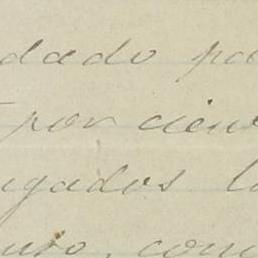 dado pa
por cien
gados l
uro, con